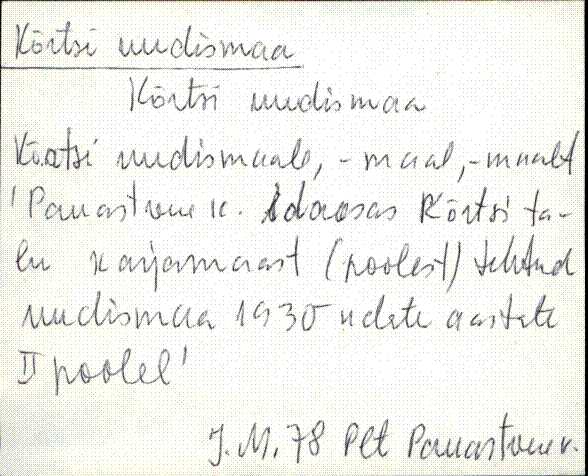 Kõrtsi uudismaa
Kõrtsi uudismaa
Kõrtsi uudismaale, -maal, -maalt
'Panastvere k. idaosas Kõrtsi ta-
lu karjamaast (poolest) tehtud
uudismaa 1930-ndate aastate
II poolel'
J. M. 78 Plt Panastvere k.